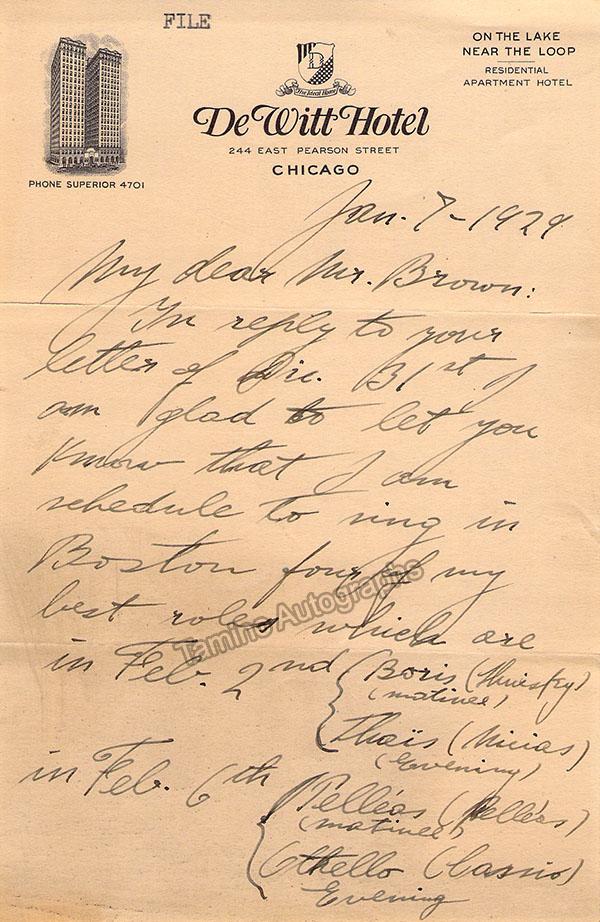 FILE
ON THE LAKE
NEAR THE LOOP
RESIDENTIAL
APARTMENT HOTEL
D
The Ideal Home
DeWitt Hotel
244 EAST PEARSON STREET
CHICAGO
PHONE SUPERIOR 4701
Jan. 7-1929
My dear Mr. Brown:
In reply to your
letter of Dec. 31st I
am glad to let you
know that I am
schedule to sing in
Boston four of my
best roles which are
in Feb. 2nd { Boris (Shuisky)
(matinee)
Thaïs (Nicias)
(Evening)
in Feb. 6th { Pelléas (Pelléas)
(matinee)
Othello (Cassio)
Evening
Tamino Autographs